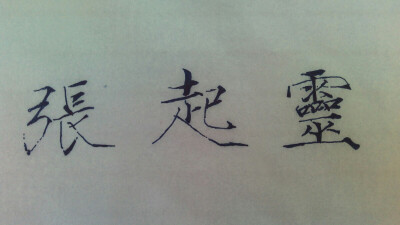 張起靈